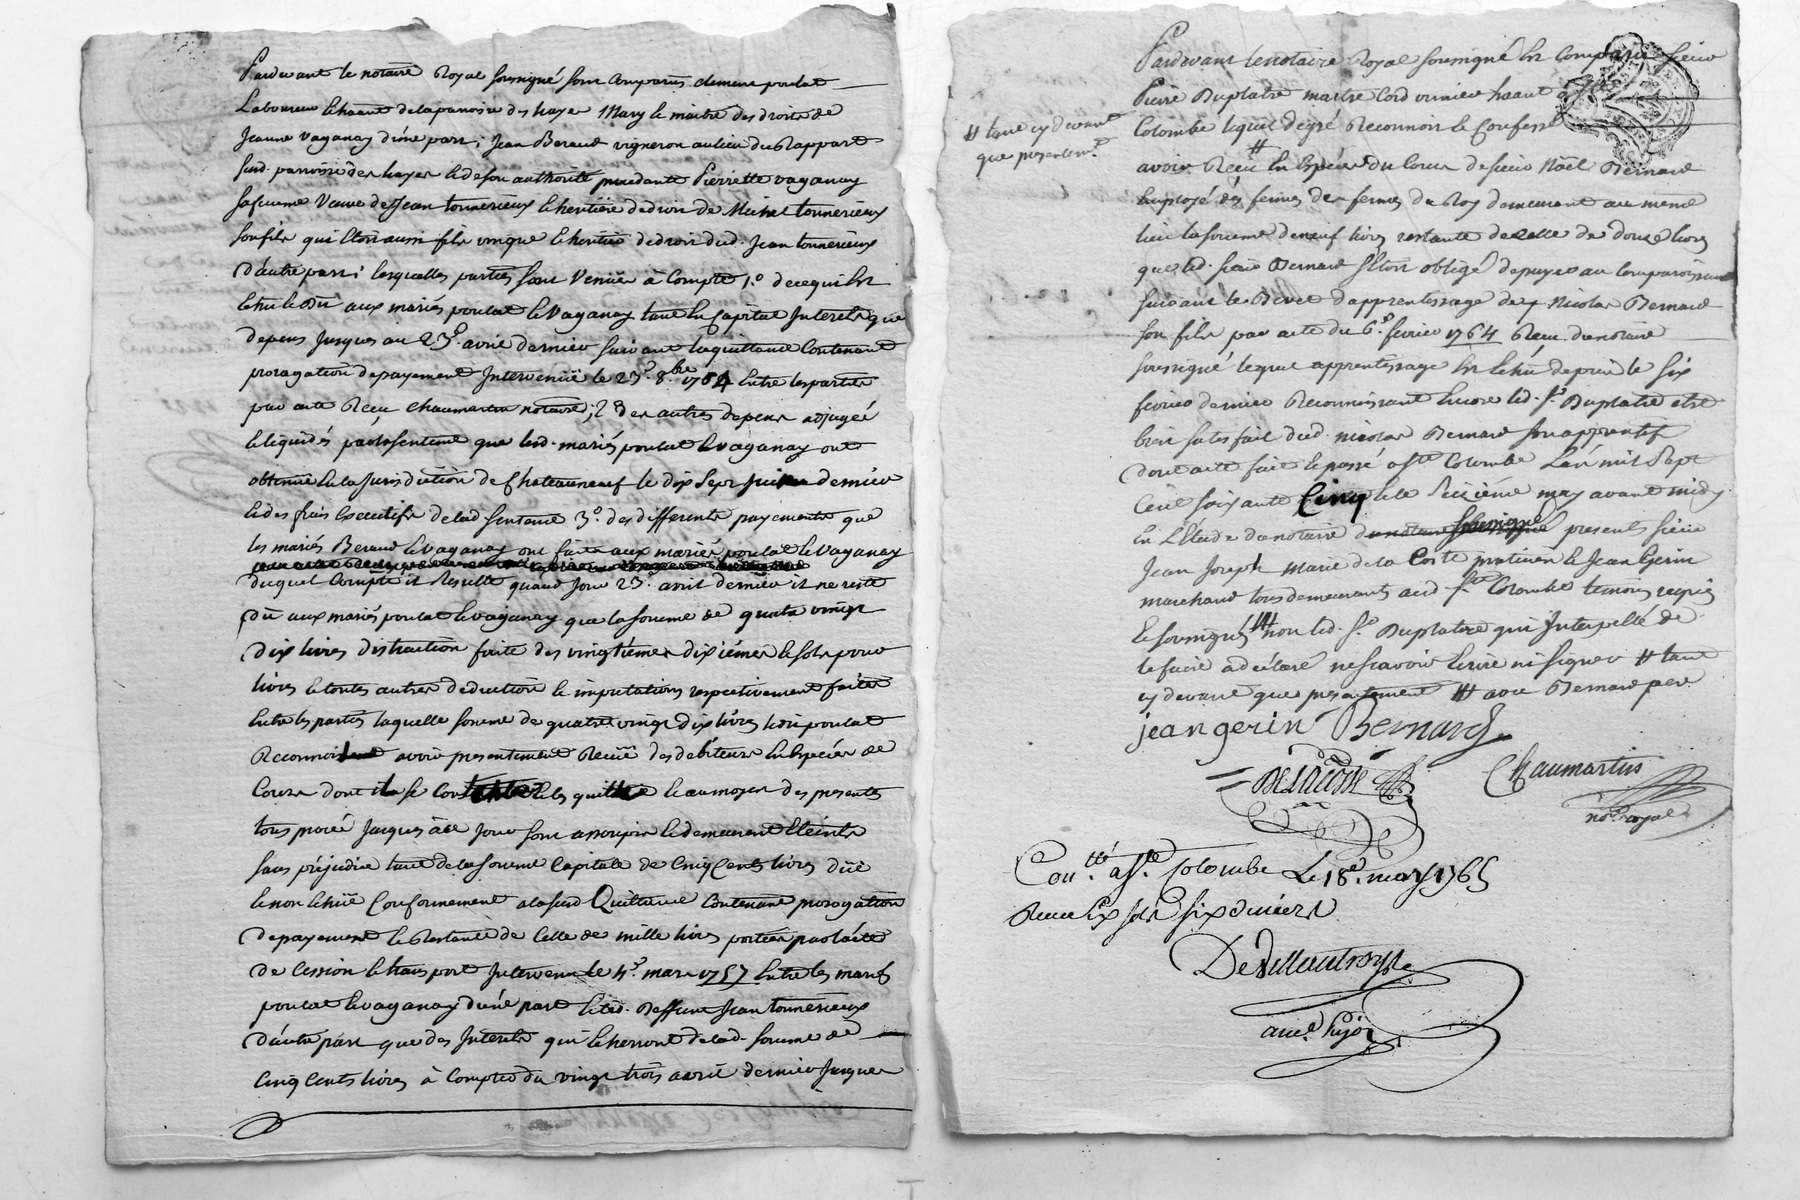 Pardevant le notaire Royal soussigné sont comparus clemens poulat
Laboureur de la paroisse des hayes Mary le maitre des droits de
Jeanne Vaganay d'une part; Jean Beraud vigneron au lieu du Rappart
susd. paroisse des hayes et de son authorité procedante Pierrette vaganay
sa femme Veuve de Jean tonnerieux et heritiere de droit de Michel tonnerieux
son fils qui etoit aussi fils unique et heritier de droit dud. Jean tonnerieux
d'autre part; lesquelles parties sont Venüe à Compte 1.° de ce qui est
et eu le Dû aux mariés poulat et Vaganay tant en Capital Interets que
depens Jusques au 23.e avril dernier suivant la quittance Contenant
prorogation de payement Intervenüe le 23.e 8.bre 1764 Entre les parties
par acte Reçu chaumartin notaire; 2.° des autres depens adjugés
et liquidés par la sentence que lesd. mariés poulat et vaganay ont
obtenüe en la Jurisdiction de Chateauneuf le dix sept juin dernier
et des frais Executifs de lad. sentence 3.° des differents payements que
les mariés Beraud et Vaganay ont faits aux mariés poulat et Vaganay
duquel Compte il Resulte quaud. Jour 23.e avril dernier il ne reste
Dû aux mariés poulat et vaganay que la somme de quatre vingt
Dix livres distraction faite des vingtiemes dixiemes et sols pour
livres et toutes autres deduction et imputations respectivement faites
Entre les parties laquelle somme de quatre vingt dix livres led. poulat
Reconnoit avoir presentement Reçüe des debiteurs En Especes de
Cours dont il se Contente et les quitte et au moyen des presentes
tous procés Jusques à ce Jour sont assoupis et demeurent Eteints
sans prejudice tant de la somme Capitale de Cinq Cents livres düe
et non Echüe Conformement a la susd. Quittance Contenant prorogation
de payement et Restante de Celle de mille livres portée par l'acte
de Cession et transport Intervenu le 4.e mars 1757 Entre les mariés
poulat et vaganay d'une part et led. Deffunt Jean tonnerieux
d'autre part que des Interets qui Echerront de lad. somme de
Cinq Cents livres à Compter du vingt trois avril dernier Jusques
Pardevant le notaire Royal soussigné Est Comparu sieur
Pierre Duplatre maitre Cordonnier a Ste
Colombe lequel de gré Reconnoit et Confesse
# tant cy devant
que presentem.t
avoir Reçu # En Especes du Cours de sieur Noël Bernard
Employé dés fermes du Roy demeurant au meme
lieu la somme de neuf livres restante de celle de douze livres
que led. sieur Bernard s'etoit obligé de payer au Comparoissant
suivant le Brevet d'apprentissage de Nicolas Bernard
son fils par acte du 6.e fevrier 1764 Reçu du notaire
soussigné lequel apprentissage Est Echu depuis le six
fevrier dernier Reconnoissant Encore led. Sr. Duplatre etre
bien satisfait dud. nicolas Bernard son apprentif
dont acte fait et passé a Ste Colombe L'an mil Sept
Cent soixante Cinq et le seizième may avant midy
en L'Etude du notaire soussigné presents sieur
Jean Joseph Marie de la Coste praticien et Jean Gerin
marchand tous demeurants aud. Ste Colombe temoins requis
et soussignés ## non led. Sr. Duplatre qui Interpellé de
le faire a declaré ne scavoir Ecrire ni signer # tant
cy devant que presentement ## avec Bernard pere
jean gerin Bernard
DELACOSTE Chaumartin
no.re royal
Con.llé a Ste. Colombe Le 18.e may 1765
Reçu six sols six deniers
DeVillautroys
avec Giro